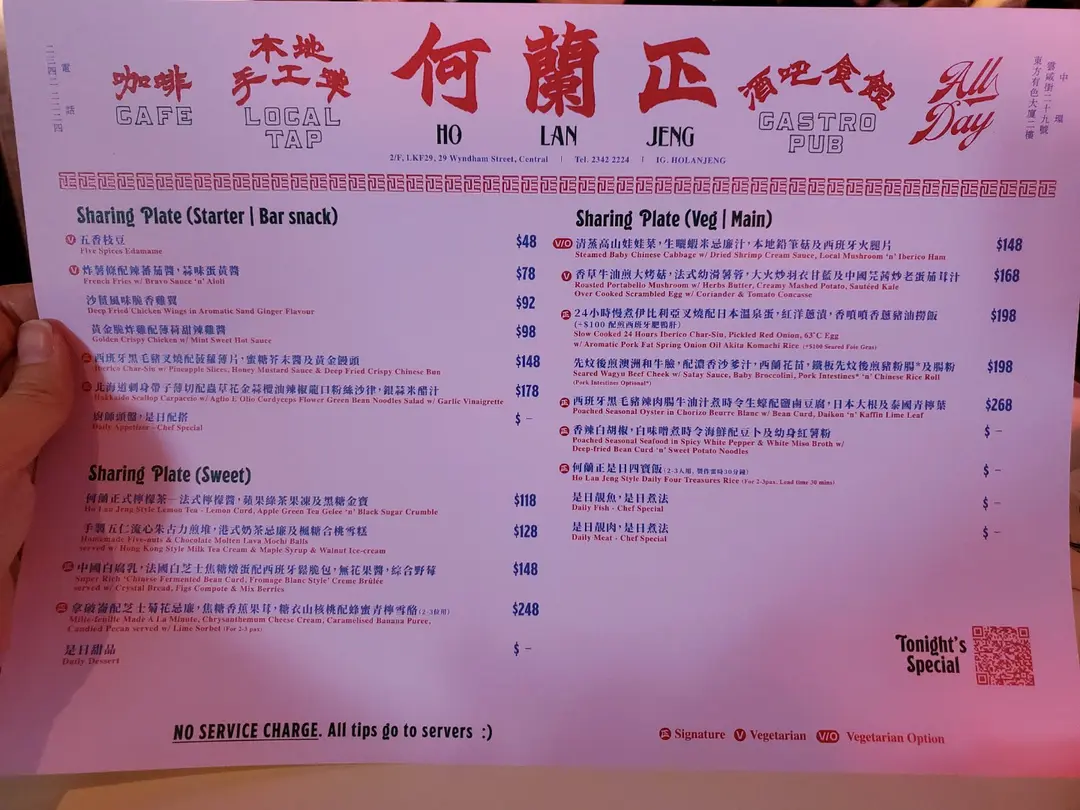 電話
二三四二 二二二四
咖啡
CAFE
本地
手工啤
LOCAL
TAP
何蘭正
HO LAN JENG
酒吧食館
GASTRO
PUB
All
Day
中環
雲咸街二十九號
東方有色大廈二樓
2/F, LKF29, 29 Wyndham Street, Central | Tel. 2342 2224 | IG. HOLANJENG
Sharing Plate (Starter | Bar snack)
V 五香枝豆 $48
Five Spices Edamame
V 炸薯條配辣蕃茄醬，蒜味蛋黃醬 $78
French Fries w/ Bravo Sauce 'n' Aioli
沙薑風味脆香雞翼 $92
Deep Fried Chicken Wings in Aromatic Sand Ginger Flavour
黃金脆炸雞配薄荷甜辣雞醬 $98
Golden Crispy Chicken w/ Mint Sweet Hot Sauce
正 西班牙黑毛豬叉燒配菠蘿薄片，蜜糖芥末醬及黃金饅頭 $148
Iberico Char-Siu w/ Pineapple Slices, Honey Mustard Sauce & Deep Fried Crispy Chinese Bun
正 北海道刺身帶子薄切配蟲草花金蒜欖油辣椒龍口粉絲沙律，銀蒜米醋汁 $178
Hokkaido Scallop Carpaccio w/ Aglio E Olio Cordyceps Flower Green Bean Noodles Salad w/ Garlic Vinaigrette
廚師頭盤，是日配搭 $ –
Daily Appetiser - Chef Special
Sharing Plate (Sweet)
何蘭正式檸檬茶—法式檸檬醬，蘋果綠茶果凍及黑糖金寶 $118
Ho Lan Jeng Style Lemon Tea - Lemon Curd, Apple Green Tea Gelee 'n' Black Sugar Crumble
手製五仁流心朱古力煎堆，港式奶茶忌廉及楓糖合桃雪糕 $128
Homemade Five-nuts & Chocolate Molten Lava Mochi Balls
served w/ Hong Kong Style Milk Tea Cream & Maple Syrup & Walnut Ice-cream
正 中國白腐乳，法國白芝士焦糖燉蛋配西班牙鬆脆包，無花果醬，綜合野莓 $148
Super Rich 'Chinese Fermented Bean Curd, Fromage Blanc Style' Creme Brûlée
served w/ Crystal Bread, Figs Compote & Mix Berries
正 拿破崙配芝士菊花忌廉，焦糖香蕉果茸，糖衣山核桃配蜂蜜青檸雪酪 (2-3位用) $248
Mille-feuille Made A La Minute, Chrysanthemum Cheese Cream, Caramelised Banana Puree,
Candied Pecan served w/ Lime Sorbet (For 2-3 pax)
是日甜品 $ –
Daily Dessert
Sharing Plate (Veg | Main)
V/O 清蒸高山娃娃菜，生曬蝦米忌廉汁，本地鉛筆菇及西班牙火腿片 $148
Steamed Baby Chinese Cabbage w/ Dried Shrimp Cream Sauce, Local Mushroom 'n' Iberico Ham
V 香草牛油煎大烤菇，法式幼滑薯蓉，大火炒羽衣甘藍及中國芫茜炒老蛋茄茸汁 $168
Roasted Portabello Mushroom w/ Herbs Butter, Creamy Mashed Potato, Sautéed Kale
Over Cooked Scrambled Egg w/ Coriander & Tomato Concasse
正 24小時慢煮伊比利亞叉燒配日本溫泉蛋，紅洋蔥漬，香噴噴香蔥豬油撈飯 $198
(~$100 配煎西班牙肥鴨肝)
Slow Cooked 24 Hours Iberico Char-Siu, Pickled Red Onion, 63°C Egg
w/ Aromatic Pork Fat Spring Onion Oil Akita Komachi Rice (+$100 Seared Foie Gras)
先炆後煎澳洲和牛臉，配濃香沙爹汁，西蘭花苗，鐵板先炆後煎豬粉腸*及腸粉 $198
Seared Wagyu Beef Cheek w/ Satay Sauce, Baby Broccolini, Pork Intestines* 'n' Chinese Rice Roll
(Pork Intestines Optional*)
正 西班牙黑毛豬辣肉腸牛油汁煮時令生蠔配鹵豆腐，日本大根及泰國青檸葉 $268
Poached Seasonal Oyster in Chorizo Beurre Blanc w/ Bean Curd, Daikon 'n' Kaffin Lime Leaf
正 香辣白胡椒，白味噌煮時令海鮮配豆卜及幼身紅薯粉 $ –
Poached Seasonal Seafood in Spicy White Pepper & White Miso Broth w/
Deep-fried Bean Curd 'n' Sweet Potato Noodles
正 何蘭正是日四寶飯 (2-3人用, 製作需時30分鐘) $ –
Ho Lan Jeng Style Daily Four Treasures Rice (For 2-3pax, Lead time 30 mins)
是日靚魚，是日煮法 $ –
Daily Fish - Chef Special
是日靚肉，是日煮法 $ –
Daily Meat - Chef Special
Tonight's
Special
NO SERVICE CHARGE. All tips go to servers :)
正 Signature V Vegetarian V/O Vegetarian Option